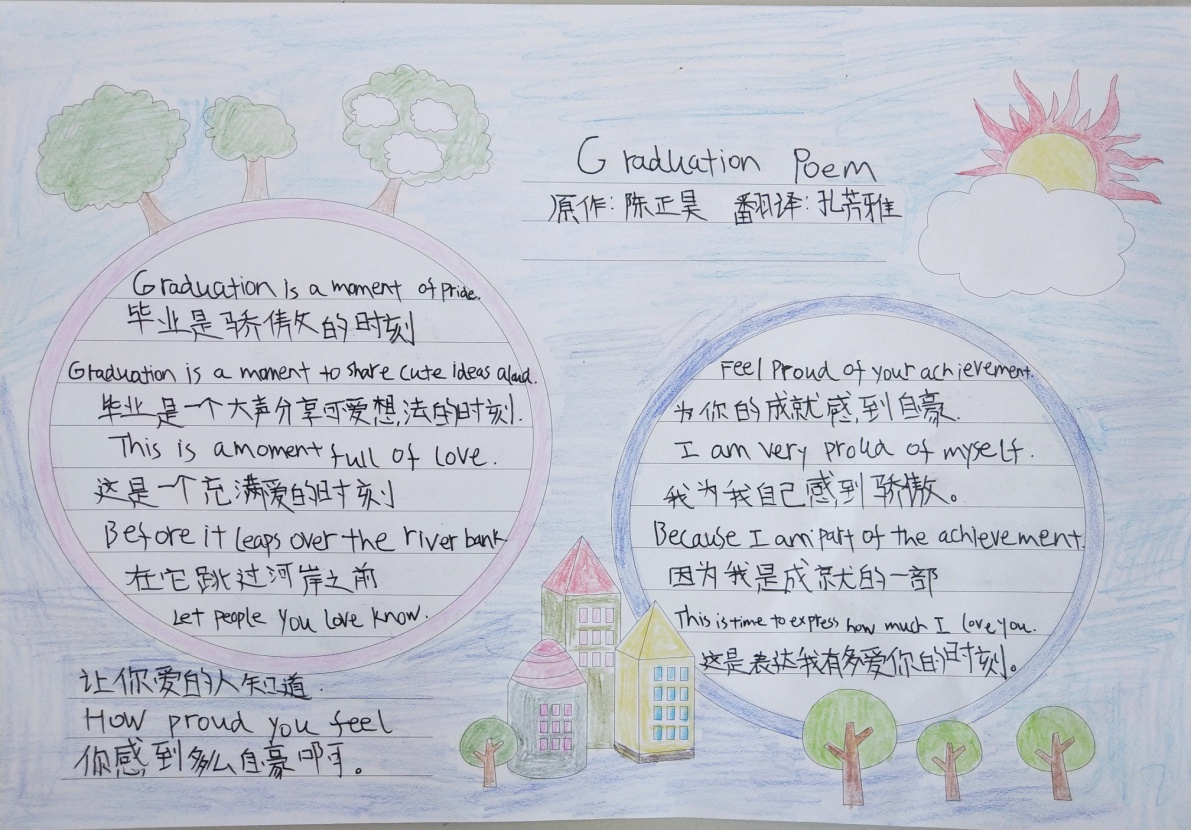 Graduation Poem
原作：陈正昊 翻译：孔芳雅
Graduation is a moment of pride.
毕业是骄傲的时刻
Graduation is a moment to share cute ideas aloud.
毕业是一个大声分享可爱想法的时刻.
This is a moment full of love.
这是一个充满爱的时刻
Before it leaps over the river bank.
在它跳过河岸之前
Let people you love know.
让你爱的人知道.
How proud you feel
你感到多么自豪啊。
Feel proud of your achievement.
为你的成就感到自豪.
I am very proud of myself.
我为我自己感到骄傲。
Because I am part of the achievement.
因为我是成就的一部
This is time to express how much I love you.
这是表达我有多爱你的时刻。